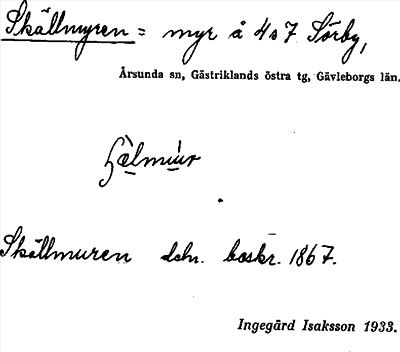 Skällmyren = myr å 4 o 7 Sörby,
Årsunda sn, Gästriklands östra tg, Gävleborgs län.
Skällmuren dsn. beskr. 1867.
Ingegärd Isaksson 1933.